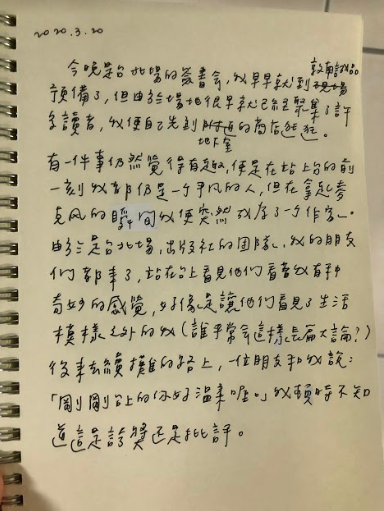 2020.3.20
今晚是台北場的簽書會，我早早就到敦南誠品
預備了，但由於場地很早就已經聚集了許
多讀者，我便自己先到地下室的商店逛逛。
有一件事仍然覺得有趣，便是在站上台的前
一刻我都仍是一個平凡的人，但在拿起麥
克風的瞬間我便突然成為了一個作家。
由於是台北場，出版社的團隊、我的朋友
們都來了，站在台上看見他們看著我有種
奇妙的感覺，好像是讓他們看見了生活
模樣之外的我（誰平常會這樣長篇大論？）
後來去續攤的路上，一位朋友和我說：
「剛剛台上的你好溫柔喔。」我頓時不知
道這是誇獎還是批評。